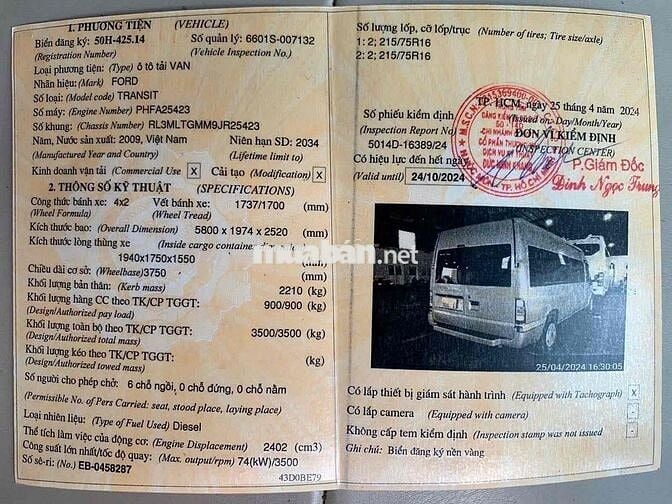 1. PHƯƠNG TIỆN (VEHICLE)
Biển đăng ký: 50H-425.14 Số quản lý: 6601S-007132
(Registration Number) (Vehicle Inspection No.)
Loại phương tiện: (Type) ô tô tải VAN
Nhãn hiệu: (Mark) FORD
Số loại: (Model code) TRANSIT
Số máy: (Engine Number) PHFA25423
Số khung: (Chassis Number) RL3MLTGMM9JR25423
Năm, Nước sản xuất: 2009, Việt Nam Niên hạn SD: 2034
(Manufactured Year and Country) (Lifetime limit to)
Kinh doanh vận tải (Commercial Use) X Cải tạo (Modification) X
2. THÔNG SỐ KỸ THUẬT (SPECIFICATIONS)
Công thức bánh xe: 4x2 Vết bánh xe: 1737/1700 (mm)
(Wheel Formula) (Wheel Tread)
Kích thước bao: (Overall Dimension) 5800 x 1974 x 2520 (mm)
Kích thước lòng thùng xe (Inside cargo container dimension)
1940x1750x1550 (mm)
Chiều dài cơ sở: (Wheelbase) 3750 (mm)
Khối lượng bản thân: (Kerb mass) 2210 (kg)
Khối lượng hàng CC theo TK/CP TGGT: 900/900 (kg)
(Design/Authorized pay load)
Khối lượng toàn bộ theo TK/CP TGGT: 3500/3500 (kg)
(Design/Authorized total mass)
Khối lượng kéo theo TK/CP TGGT: (kg)
(Design/Authorized towed mass)
Số người cho phép chở: 6 chỗ ngồi, 0 chỗ đứng, 0 chỗ nằm
(Permissible No. of Pers Carried: seat, stood place, laying place)
Loại nhiên liệu: (Type of Fuel Used) Diesel
Thể tích làm việc của động cơ: (Engine Displacement) 2402 (cm3)
Công suất lớn nhất/tốc độ quay: (Max. output/rpm) 74(kW)/3500
Số sê-ri: (No.) EB-0458287
43D0BE79
Số lượng lốp, cỡ lốp/trục (Number of tires; Tire size/axle)
1: 2; 215/75R16
2: 2; 215/75R16
TP. HCM, ngày 25 tháng 4 năm 2024
(Issued on: Day/Month/Year)
Số phiếu kiểm định
(Inspection Report No)
5014D-16389/24
ĐƠN VỊ KIỂM ĐỊNH
(INSPECTION CENTER)
Có hiệu lực đến hết ngày
(Valid until) 24/10/2024
P.Giám Đốc
Đinh Ngọc Trung
muaban.net
25/04/2024 16:30:05
Có lắp thiết bị giám sát hành trình (Equipped with Tachograph) X
Có lắp camera (Equipped with camera) -
Không cấp tem kiểm định (Inspection stamp was not issued -
Ghi chú: Biển đăng ký nền vàng